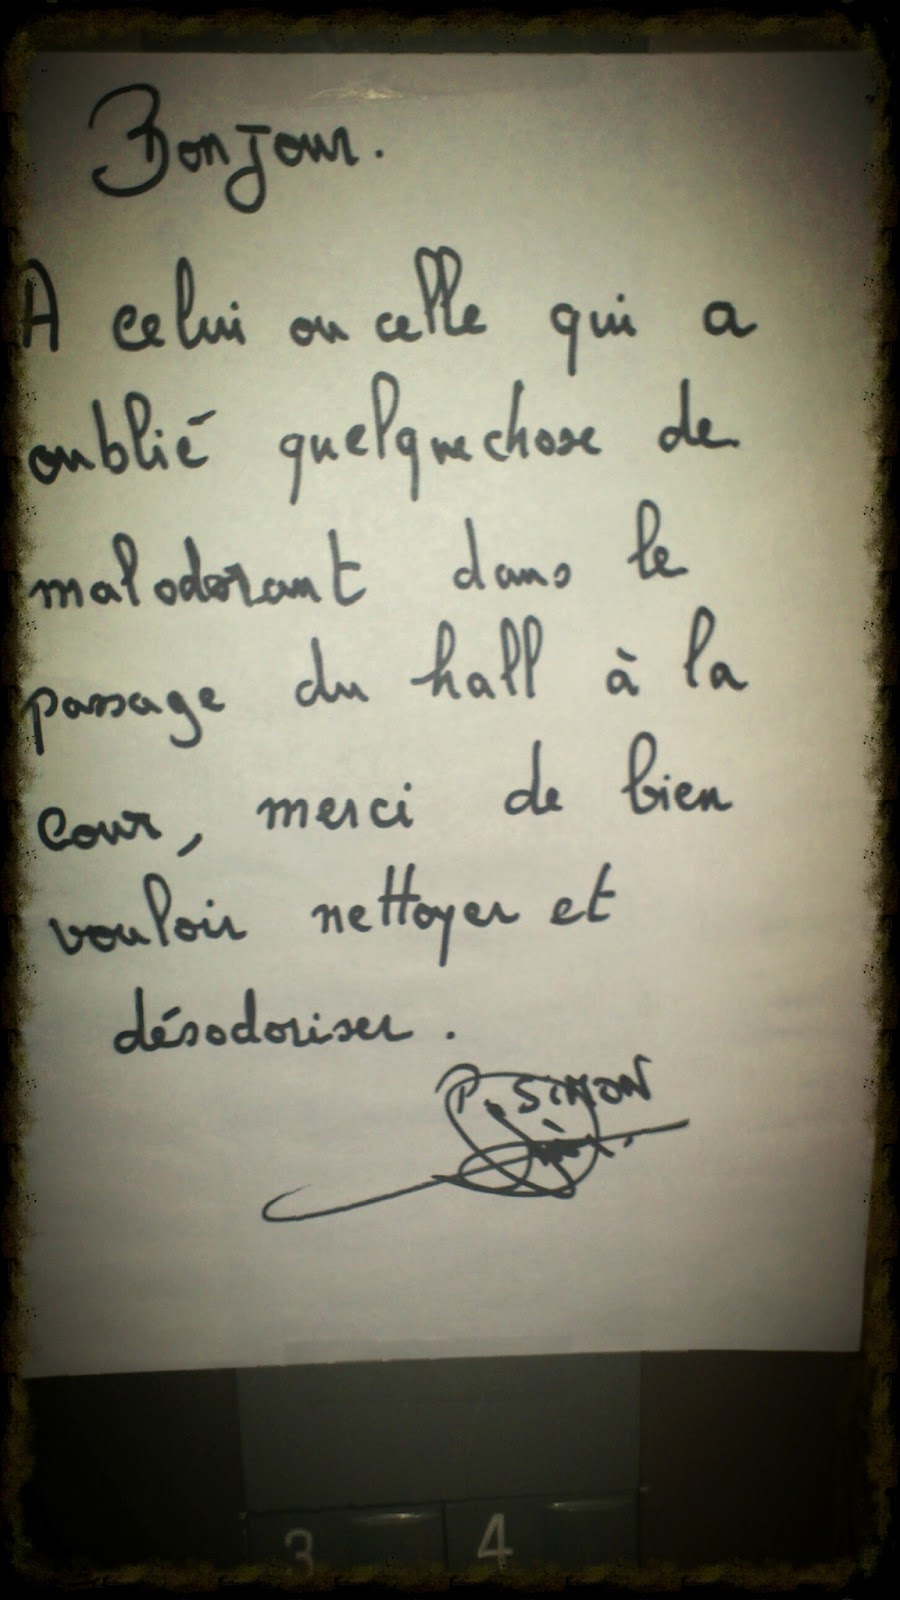 Bonjour.
A celui ou celle qui a
oublié quelquechose de
malodorant dans le
passage du hall à la
cour, merci de bien
vouloir nettoyer et
désodoriser.
P. SIMON
3 4